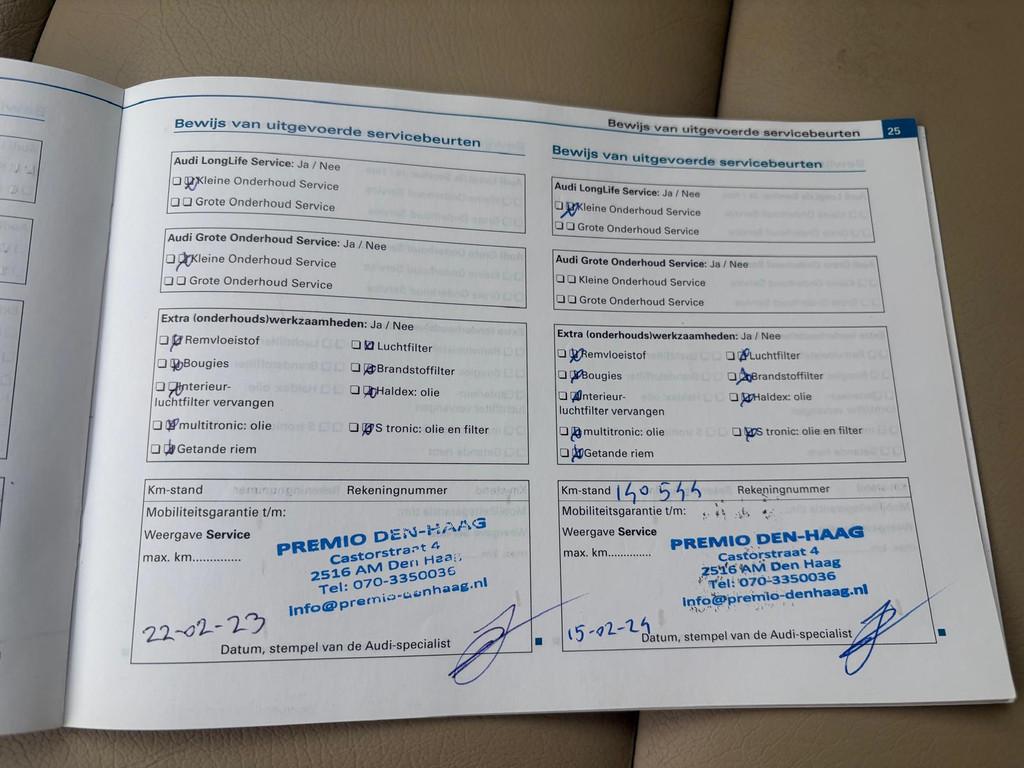 Bewijs van uitgevoerde servicebeurten 25
Bewijs van uitgevoerde servicebeurten
Audi LongLife Service: Ja / Nee
Kleine Onderhoud Service
Grote Onderhoud Service
Audi Grote Onderhoud Service: Ja / Nee
Kleine Onderhoud Service
Grote Onderhoud Service
Extra (onderhouds)werkzaamheden: Ja / Nee
Remvloeistof Luchtfilter
Bougies Brandstoffilter
Interieur- Haldex: olie
luchtfilter vervangen
multitronic: olie S tronic: olie en filter
Getande riem
Km-stand Rekeningnummer
Mobiliteitsgarantie t/m:
Weergave Service
max. km..............
PREMIO DEN-HAAG
Castorstraat 4
2516 AM Den Haag
Tel: 070-3350036
Info@premio-denhaag.nl
22-02-23
Datum, stempel van de Audi-specialist
Bewijs van uitgevoerde servicebeurten
Audi LongLife Service: Ja / Nee
Kleine Onderhoud Service
Grote Onderhoud Service
Audi Grote Onderhoud Service: Ja / Nee
Kleine Onderhoud Service
Grote Onderhoud Service
Extra (onderhouds)werkzaamheden: Ja / Nee
Remvloeistof Luchtfilter
Bougies Brandstoffilter
Interieur- Haldex: olie
luchtfilter vervangen
multitronic: olie S tronic: olie en filter
Getande riem
Km-stand 140544 Rekeningnummer
Mobiliteitsgarantie t/m:
Weergave Service
max. km..............
PREMIO DEN-HAAG
Castorstraat 4
2516 AM Den Haag
Tel: 070-3350036
Info@premio-denhaag.nl
15-02-24
Datum, stempel van de Audi-specialist